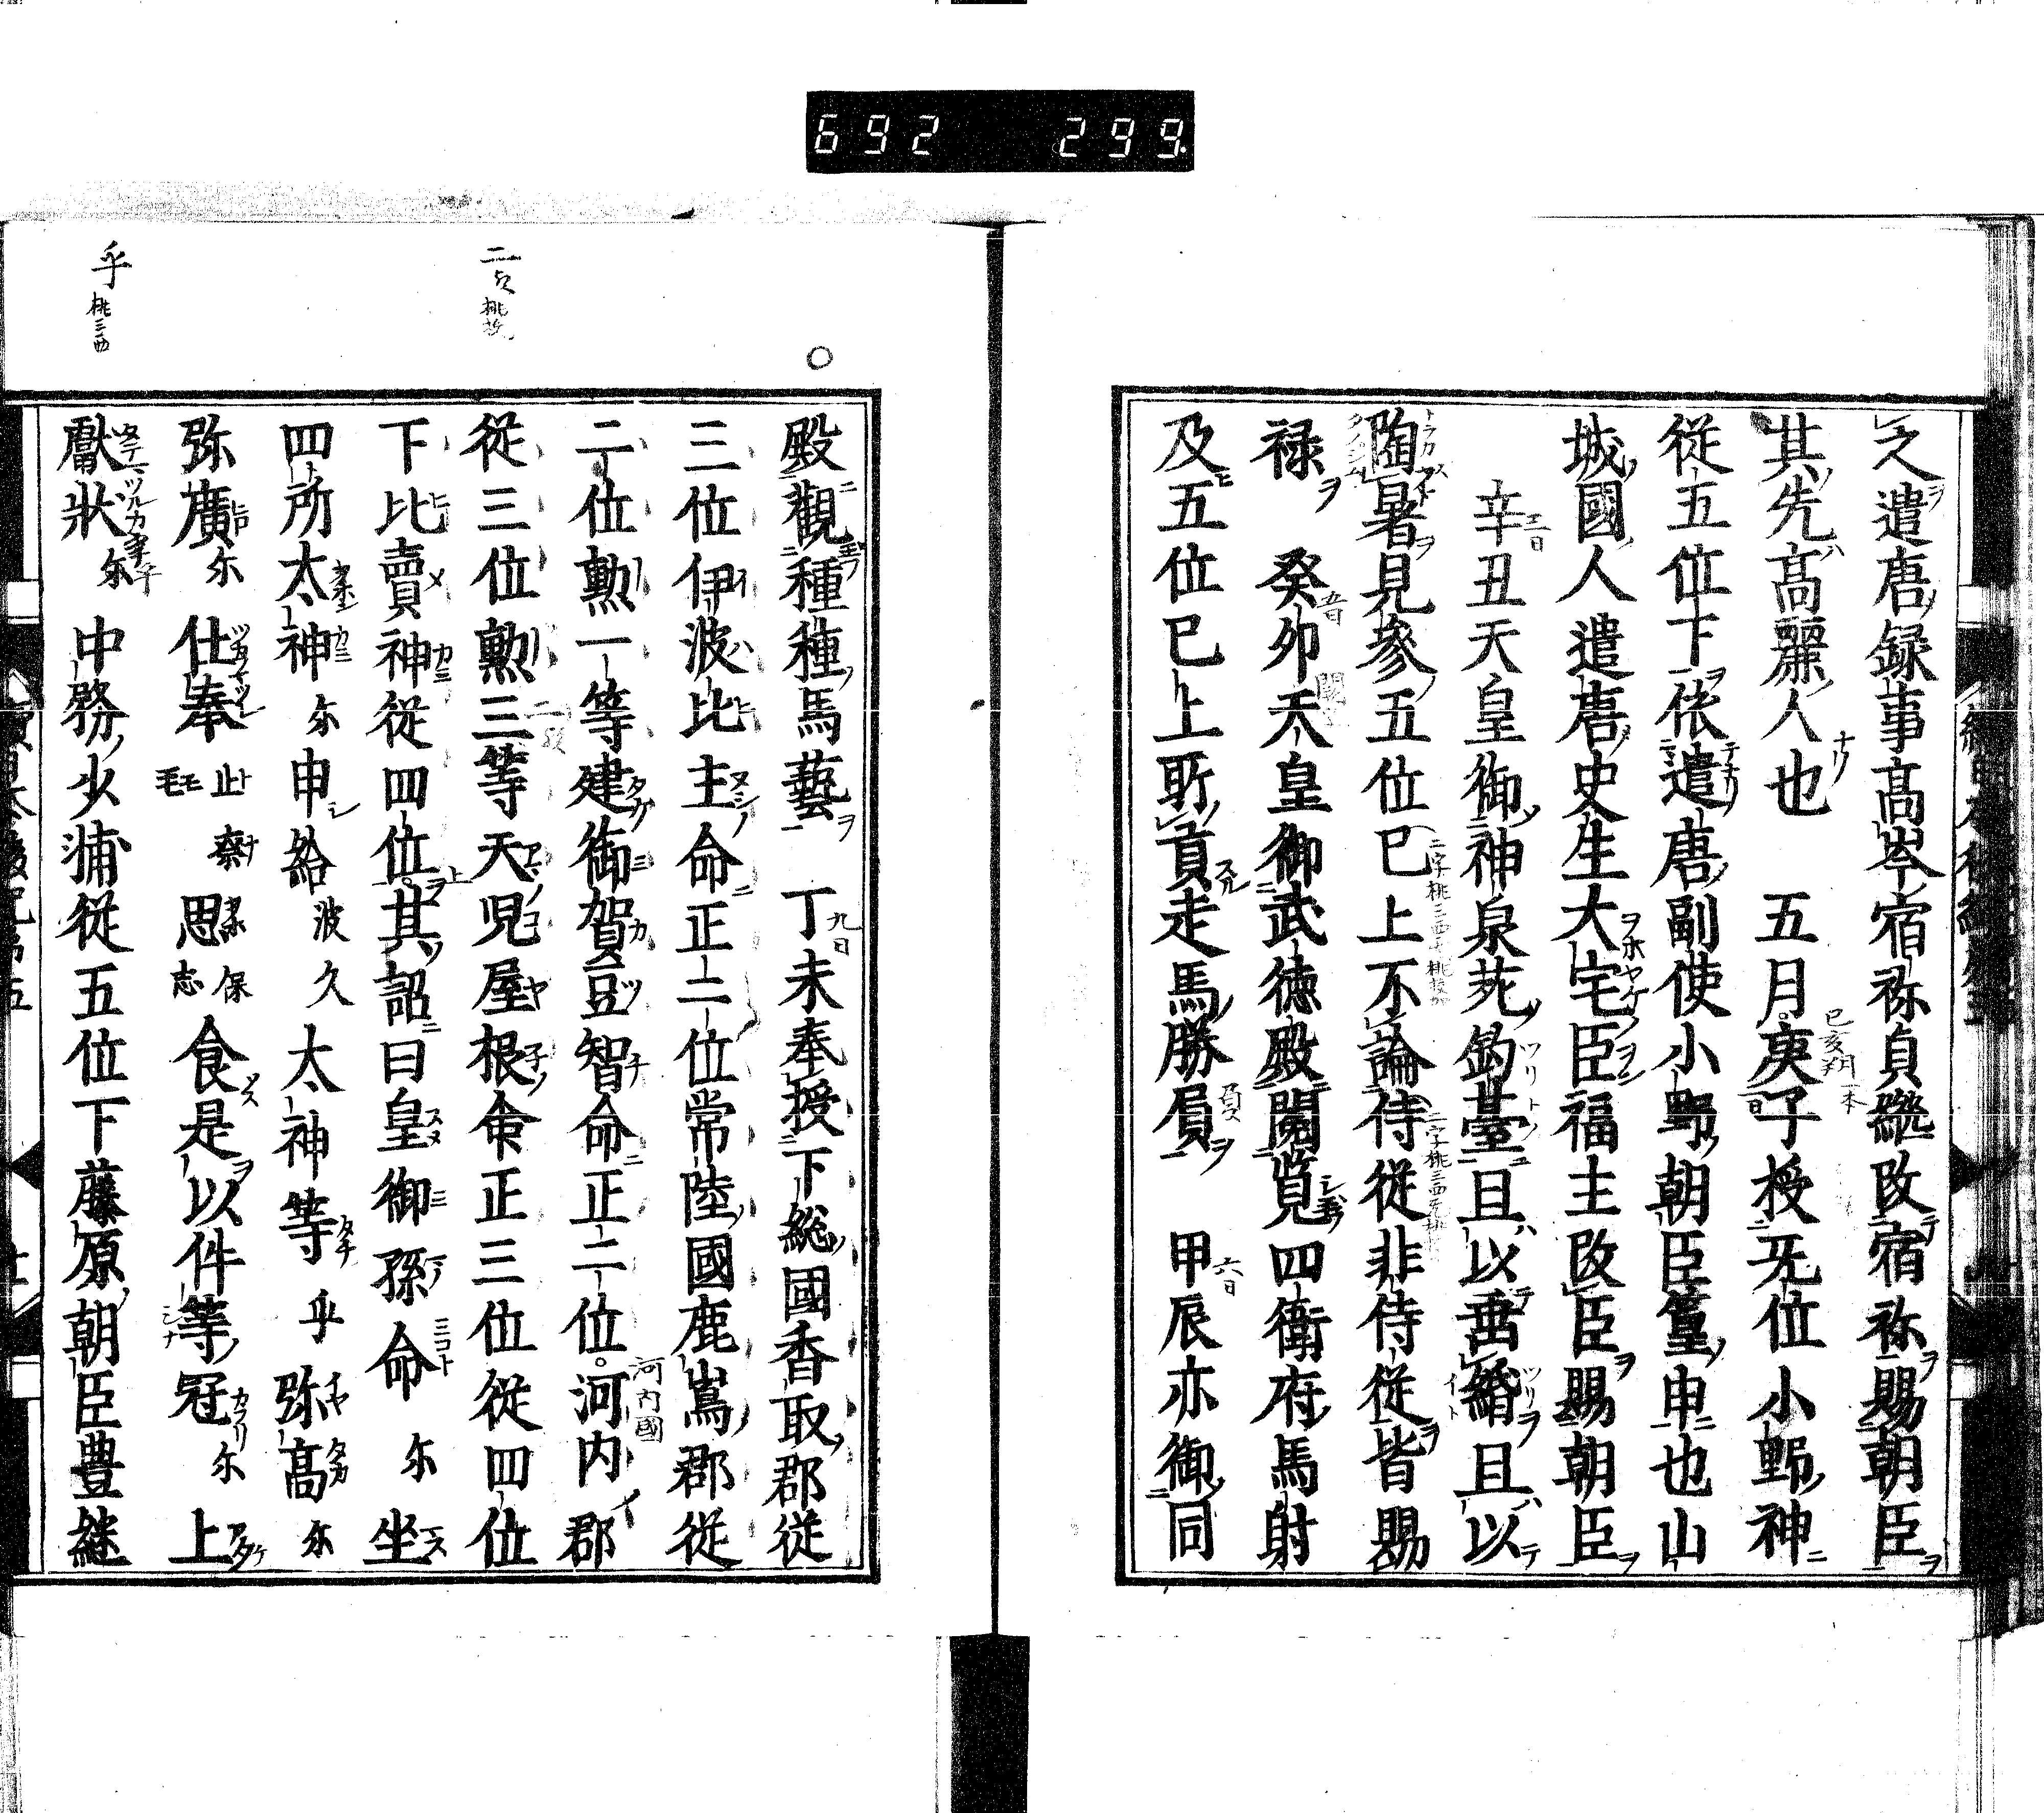 692 299
之遣唐録事高岑宿祢貞継改宿祢賜朝臣
其先高麗人也 五月庚子授无位小野神
從五位下依遣唐副使小野朝臣篁申也山
城國人遣唐史生大宅臣福主改臣賜朝臣
辛丑天皇御神泉苑釣臺且以垂緡且以
陶暑見參五位已上不論侍從非侍從皆賜
禄 癸卯天皇御武徳殿閲覧四衛府馬射
及五位已上所貢走馬勝負 甲辰亦御同
殿觀種種馬藝 丁未奉授下総國香取郡從
三位伊波比主命正二位常陸國鹿嶌郡從
二位勲一等建御賀豆智命正二位河内郡
從三位勲三等天児屋根命正三位從四位
下比賣神從四位上其詔曰皇御孫命尓坐
四所太神尓申給波久太神等乎弥高尓
弥廣尓仕奉止奈毛思保志食是以件等冠尓上
獻狀尓中務少浦從五位下藤原朝臣豊継